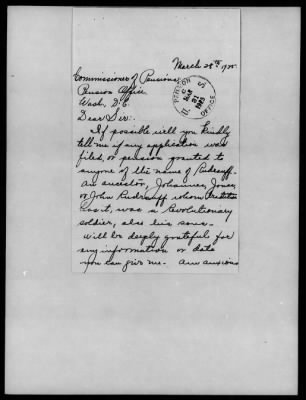 March 28th 1925
Commissioner of Pensions
Pension Office
Wash. D.C.
PENSION OFFICE
Dear Sir:.
If possible will you kindly
tell me if any application was
filed, or pension granted to
anyone of the name of
An ancestor, Johannes,
or John whom tradition
has it, was a Revolutionary
soldier, also his sons.
Will be deeply grateful for
any information or data
you can give me. Am anxious